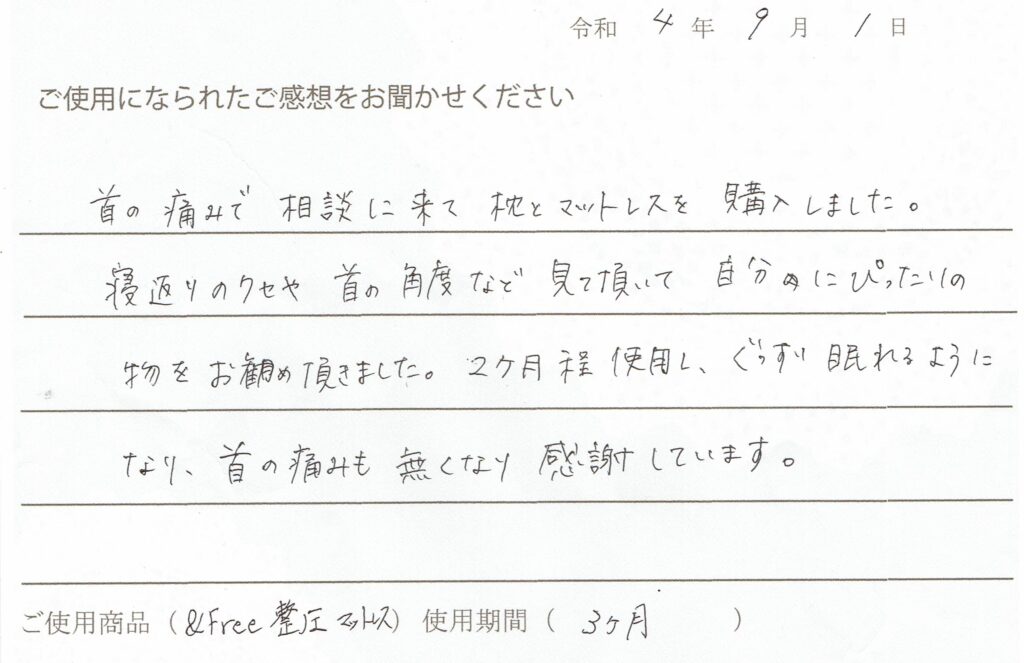 令和 4 年 9 月 1 日
ご使用になられたご感想をお聞かせください
首の痛みで 相談に来て 枕とマットレスを 購入しました。
寝返りのクセや 首の角度など 見て頂いて 自分にぴったりの
物をお勧め頂きました。2ケ月程使用し、ぐっすり眠れるように
なり、首の痛みも 無くなり 感謝しています。
ご使用商品（&Free 整圧マットレス）使用期間（ 3ケ月 ）